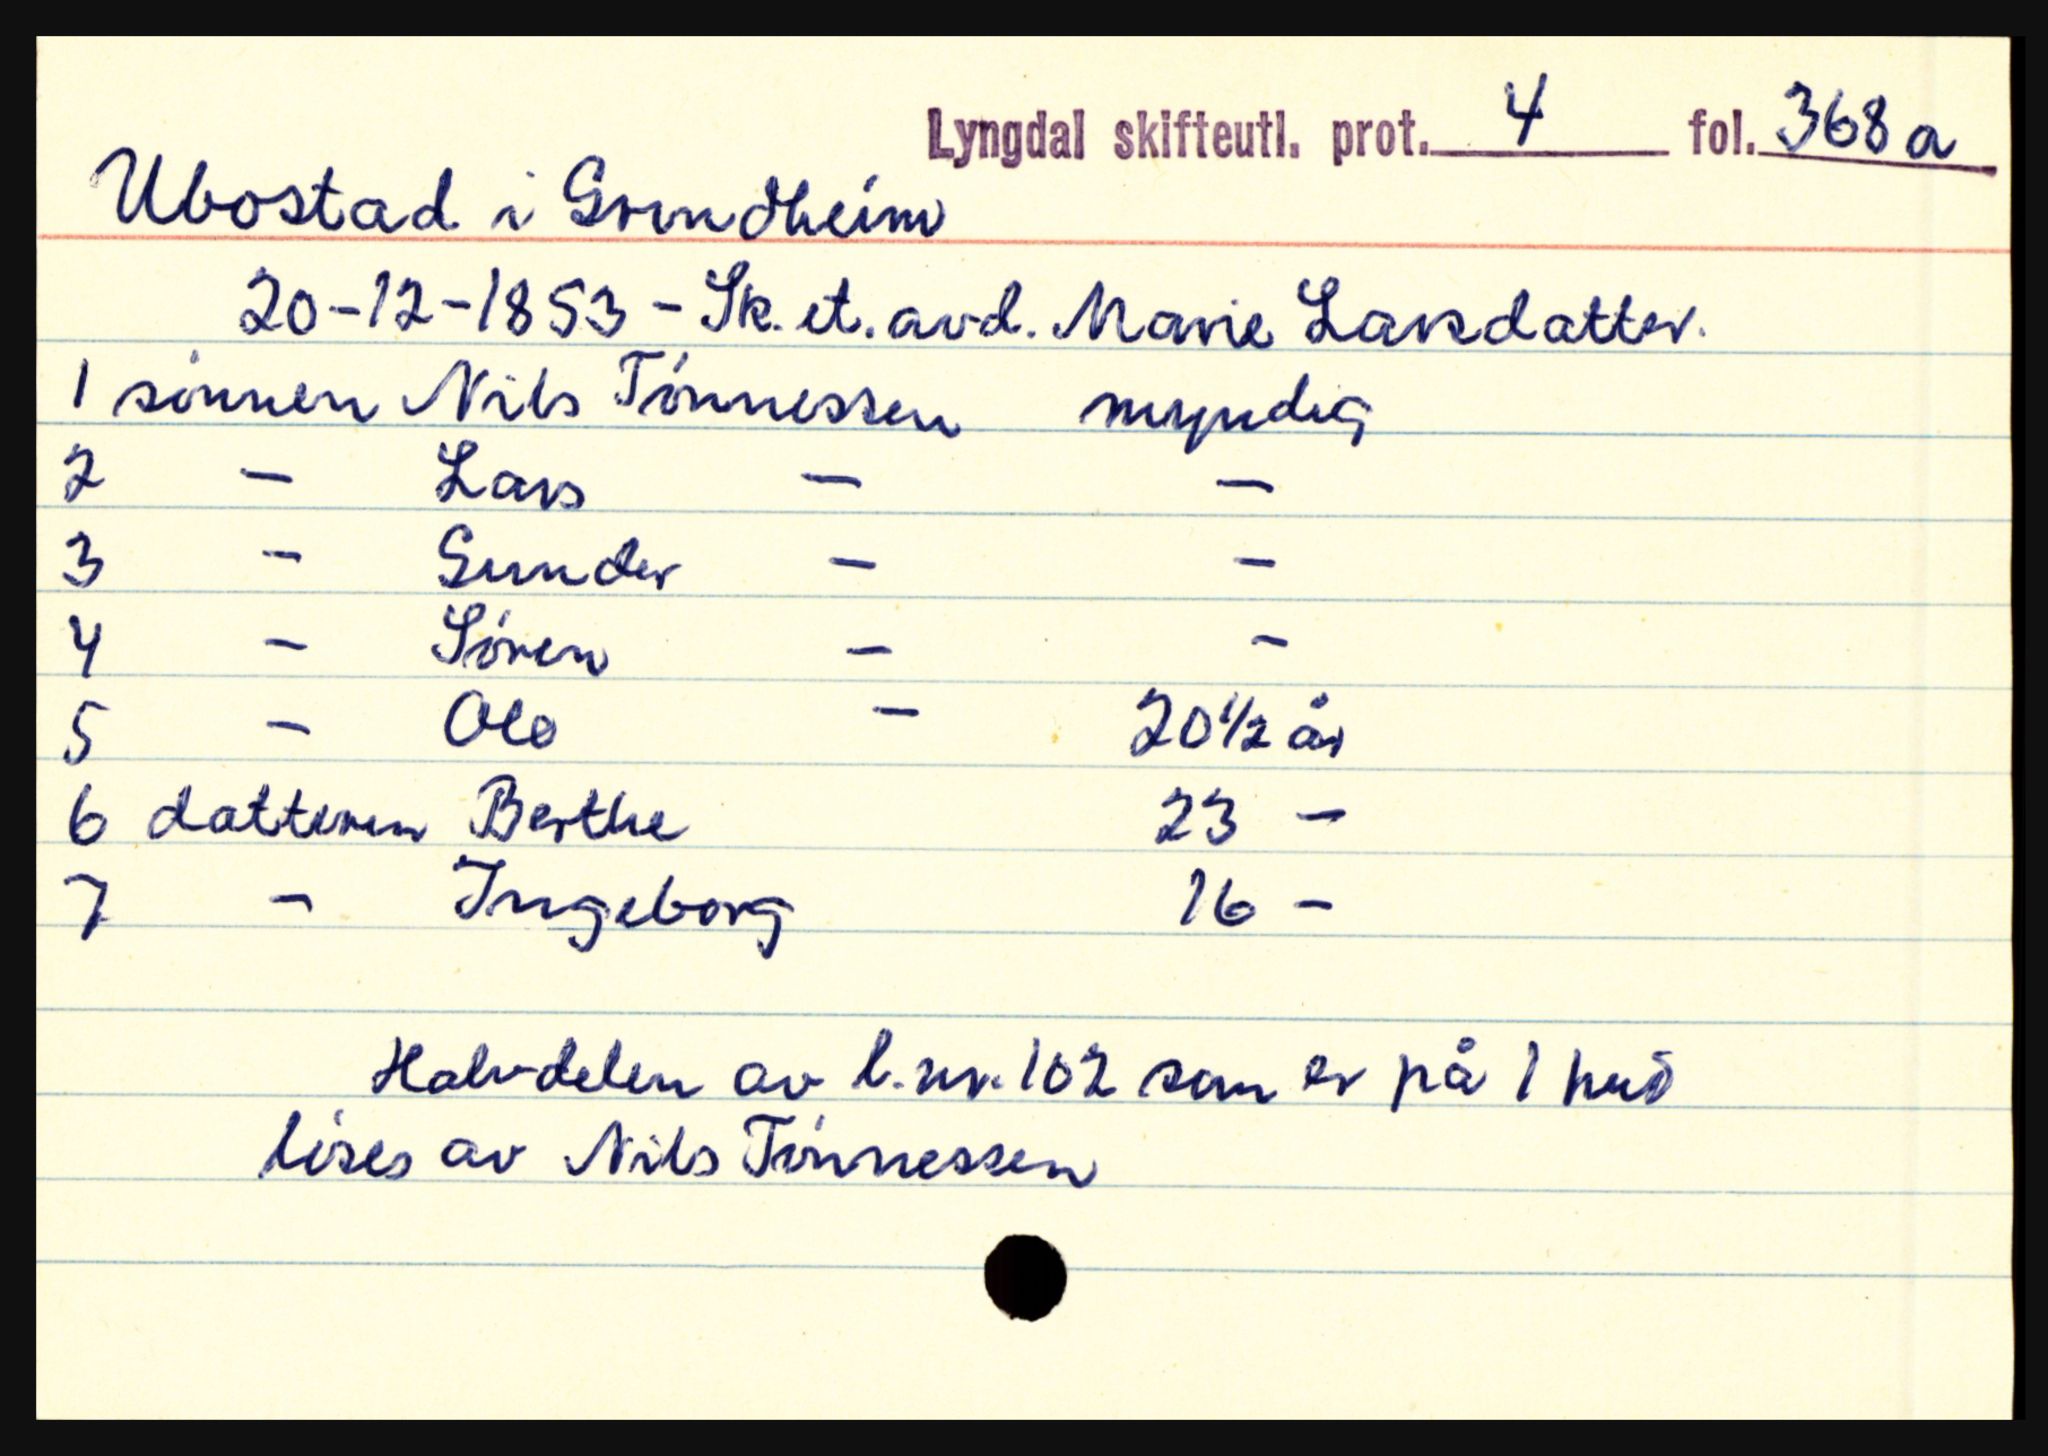 Lyngdal skifteutl. prot. 4 fol. 368 a
Ubostad i Grundheim
20-12-1853 - Sk. et. avd. Marie Larsdatter.
1 sønnen Nils Tønnessen myndig
2 - Lars - -
3 - Gunder - -
4 - Søren - -
5 - Ole - 20 1/2 år
6 datteren Berthe 23 -
7 - Ingeborg 16 -
Halvdelen av l.nr. 102 som er på 1 hud
løses av Nils Tønnessen